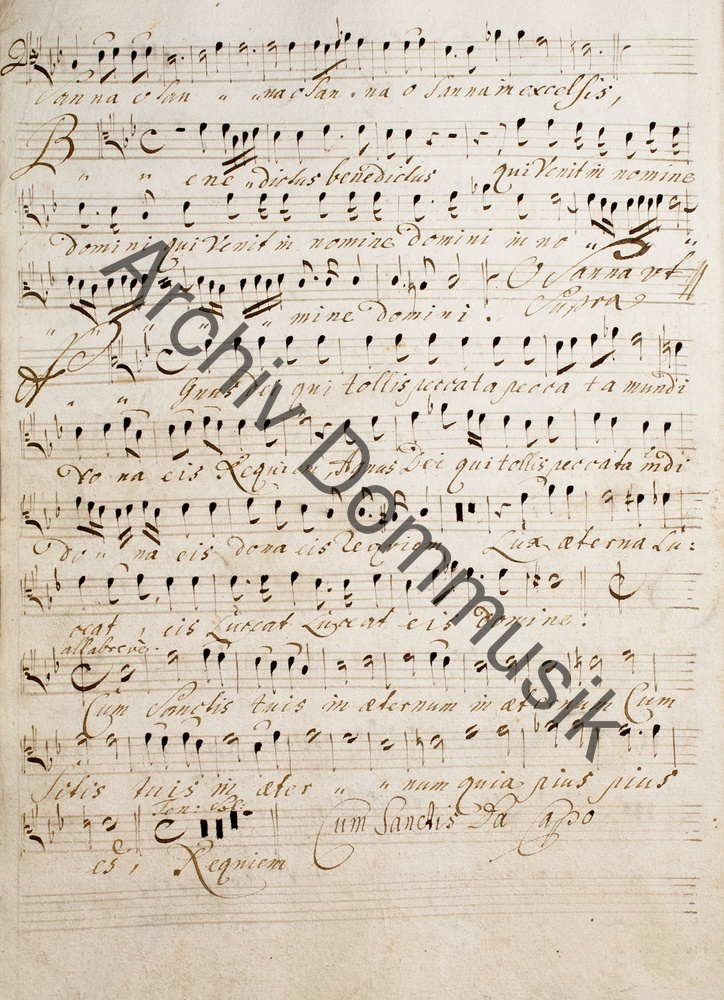 Sanna o San " " na o San " na o Sanna in excelsis,
B " " ene " dictus benedictus qui Venit in nomine
domini qui Venit in nomine domini in no " "
" " " " mine domini. O Sanna vt
Supra
A " " Gnus Dei qui tollis peccata pecca ta mundi
Do na eis Requiem, Agnus Dei qui tollis peccata mdi
Do " " na eis dona eis Requiem Lux æterna Lu:
ceat, eis Luceat Luceat eis Domine.
allabreve.
Cum Sanctis tuis in æternum in æternum Cum
Sctis tuis in æter " " num quia pius pius
Cum Sanctis Da Capo
es, Requiem
Archiv Dommusik